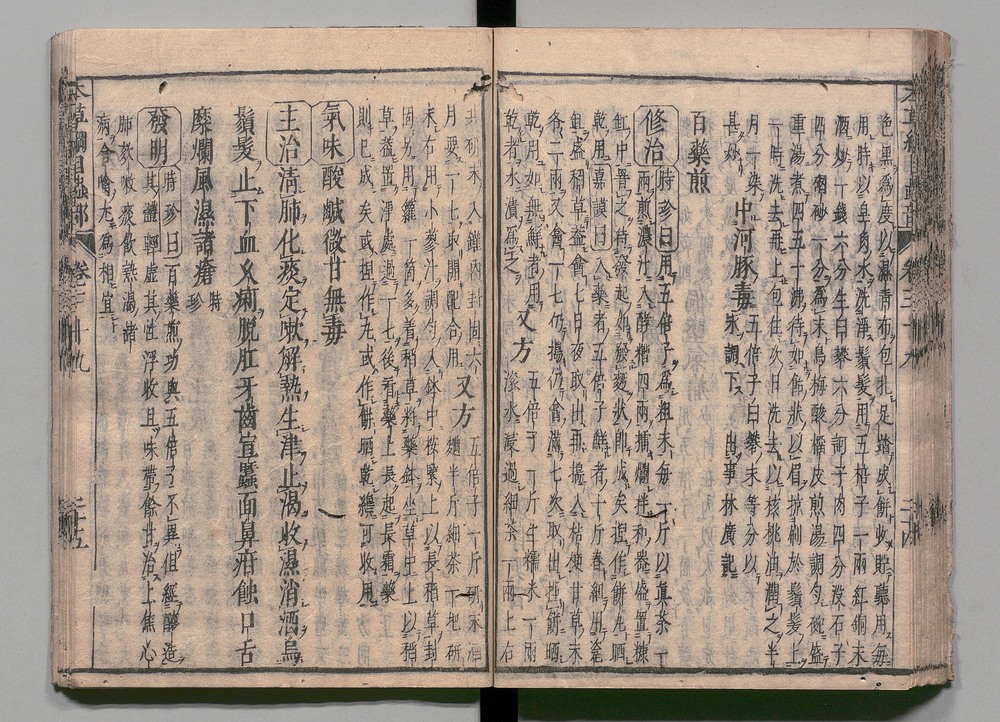 色黑爲度以濕青布包扎足踏成餅收貯聽用每
用時以皂角肉水洗淨鬚髮用五倍子一兩紅銅末
酒炒一錢六分生白礬六分訶子肉四分沒石子
四分硇砂一分爲末烏梅酸榴皮煎湯調勻碗盛
重湯煮四五十沸待如飴狀以眉掠刷於鬚髮上
一時洗去再上包住次日洗去以核桃油潤之半
月一染甚妙
中河豚毒五倍子白礬末等分以水調下出事林廣記
百藥煎
修治時珍曰用五倍子爲粗末每一斤以真茶一
兩煎濃汁入酵糟四兩擂爛拌和器盛置糠
缸中罨之待發起如發麪狀即成矣捏作餅丸晒
乾用嘉謨曰入藥者五倍子鮮者十斤舂細用瓷
缸盛稻草蓋七日夜取出再搗入桔梗甘草末
各二兩又七日仍搗仍滿七次取出捏餅晒
乾用如無鮮者用乾者水漬爲之
又方五倍子一斤生糯米一兩
滾水浸過細茶一兩上右
末入罐內封固六
月要一七取開配合用又方五倍子一斤研末酒
麴半斤細茶一把研
末右用小蓼汁調勻入鉢中按緊上以長稻草封
固另用籮一箇多着稻草將藥鉢坐草中上以稻
草蓋置淨處過一七後看藥上長起長霜藥
則已成矣或捏作丸或作餅晒乾纔可收用
氣味酸鹹微甘無毒
主治清肺化痰定欬解熱生津止渴收濕消酒烏
鬚髮止下血久痢脫肛牙齒宣䘌面鼻疳蝕口舌
糜爛風濕諸瘡時珍
發明時珍曰百藥煎功與五倍子不異但經釀造
其體輕虛其性浮收且味帶餘甘治上焦心
肺欬嗽痰飲熱渴諸
病含噙尤爲相宜
本草綱目蟲部
卷三十九
二十五